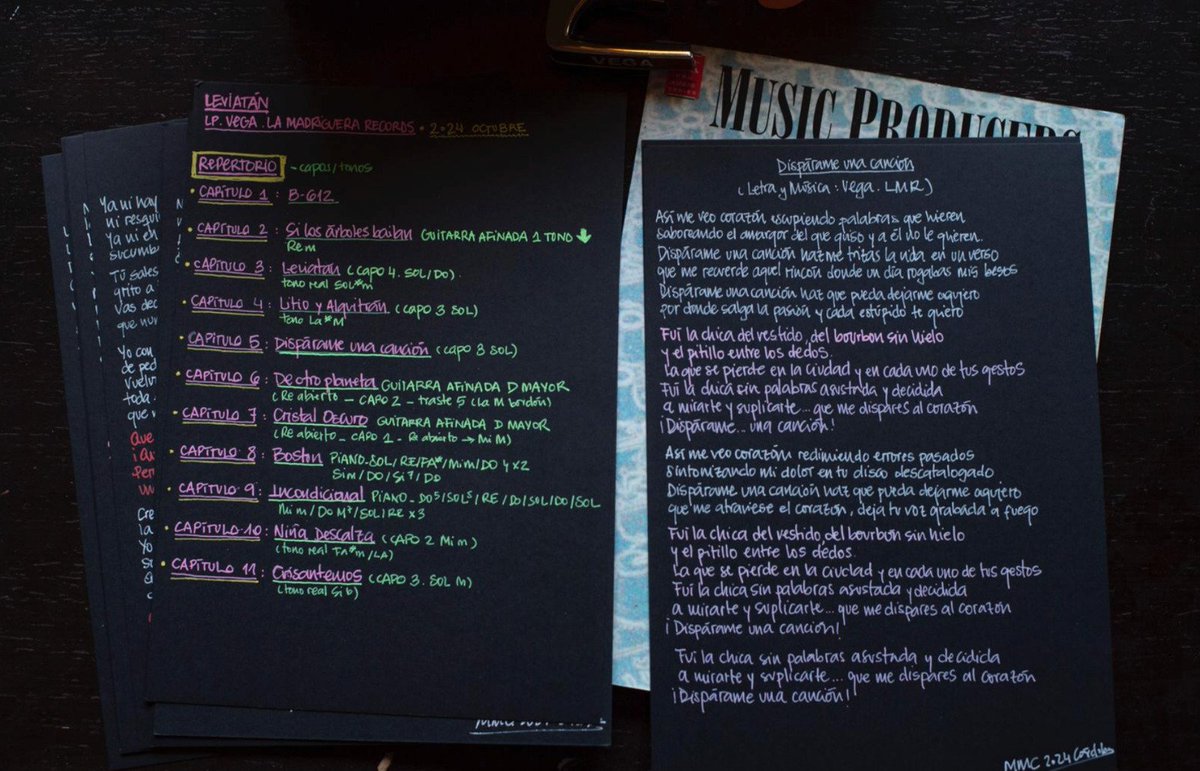 VEGA
MUSIC PRODUCERS
LEVIATÁN
LP. VEGA. LA MADRIGUERA RECORDS • 2.024 OCTUBRE
REPERTORIO - capos/tonos
• CAPÍTULO 1 : B-612
• CAPÍTULO 2 : Si los árboles bailan GUITARRA AFINADA 1 TONO ↓
Rem
• CAPÍTULO 3 : Leviatán (CAPO 4. SOL/DO)
tono real SOL#m
• CAPÍTULO 4 : Litio y Alquitrán (CAPO 3 SOL)
tono La#M
• CAPÍTULO 5 : Dispárame una canción (CAPO 3 SOL)
• CAPÍTULO 6 : De otro planeta GUITARRA AFINADA D MAYOR
(Re abierto - CAPO 2 - traste 5 (La M bordón)
• CAPÍTULO 7 : Cristal Oscuro GUITARRA AFINADA D MAYOR
(Re abierto - CAPO 1 - Re abierto → Mi M)
• CAPÍTULO 8 : Boston PIANO-SOL/RE/FA#/Mim/DO 4x2
Sim/DO/Si7/DO
• CAPÍTULO 9 : Incondicional PIANO - DO5/SOL5/RE/DO/SOL/DO/SOL
Mim/DO M7/SOL/RE x3
• CAPÍTULO 10 : Niña Descalza (CAPO 2 Mim)
(tono real FA#m/LA)
• CAPÍTULO 11 : Crisantemos (CAPO 3. SOL M)
(tono real Sib)
Ya ni hay
ni resqui
Ya ni eh
sucumb
Tú sales
grito a
Vas dec
que nu
Yo con
de ped
Vuelv
toda
que
Que
¡Au
Per
un
Cre
la
Yo
Dispárame una canción
(Letra y Música : Vega. LMR)
Así me veo corazón escupiendo palabras que hieren
saboreando el amargor del que quiso y a él no le quieren.
Dispárame una canción haz me tritas la vida en un verso
que me recuerde aquel rincón donde un día rogabas mis besos
Dispárame una canción haz que pueda dejarme agujero
por donde salga la pasión y cada estúpido te quiero
Fui la chica del vestido, del bourbon sin hielo
y el pitillo entre los dedos.
La que se pierde en la ciudad y en cada uno de tus gestos
Fui la chica sin palabras asustada y decidida
a mirarte y suplicarte... que me dispares al corazón
¡Dispárame... una canción!
Así me veo corazón redimiendo errores pasados
sintonizando mi dolor en tu disco descatalogado
Dispárame una canción haz que pueda dejarme agujero
que me atraviese el corazón, deja tu voz grabada a fuego
Fui la chica del vestido, del bourbon sin hielo
y el pitillo entre los dedos.
La que se pierde en la ciudad y en cada uno de tus gestos
Fui la chica sin palabras asustada y decidida
a mirarte y suplicarte... que me dispares al corazón
¡Dispárame una canción!
Fui la chica sin palabras asustada y decidida
a mirarte y suplicarte... que me dispares al corazón
¡Dispárame una canción!
MMC 2.024 Córdoba